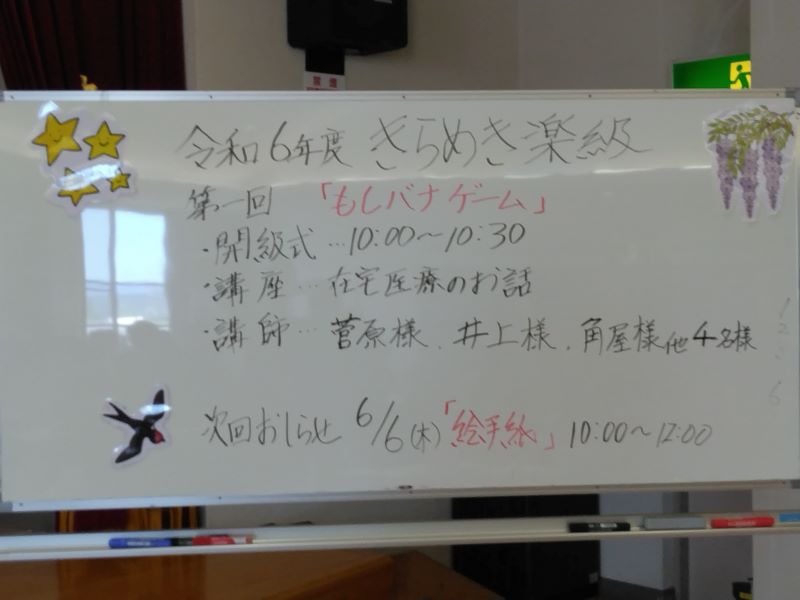 令和6年度 きらめき楽級
第一回 「もしバナゲーム」
・開級式…10:00～10:30
・講座…在宅医療のお話
・講師…菅原様、井上様、角屋様他4名様
次回おしらせ 6/6(木)「絵手紙」 10:00～12:00